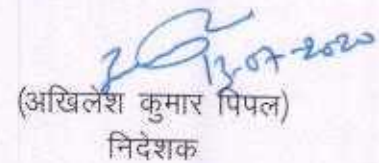 13-07-2020
(अखिलेश कुमार पिपल)
निदेशक